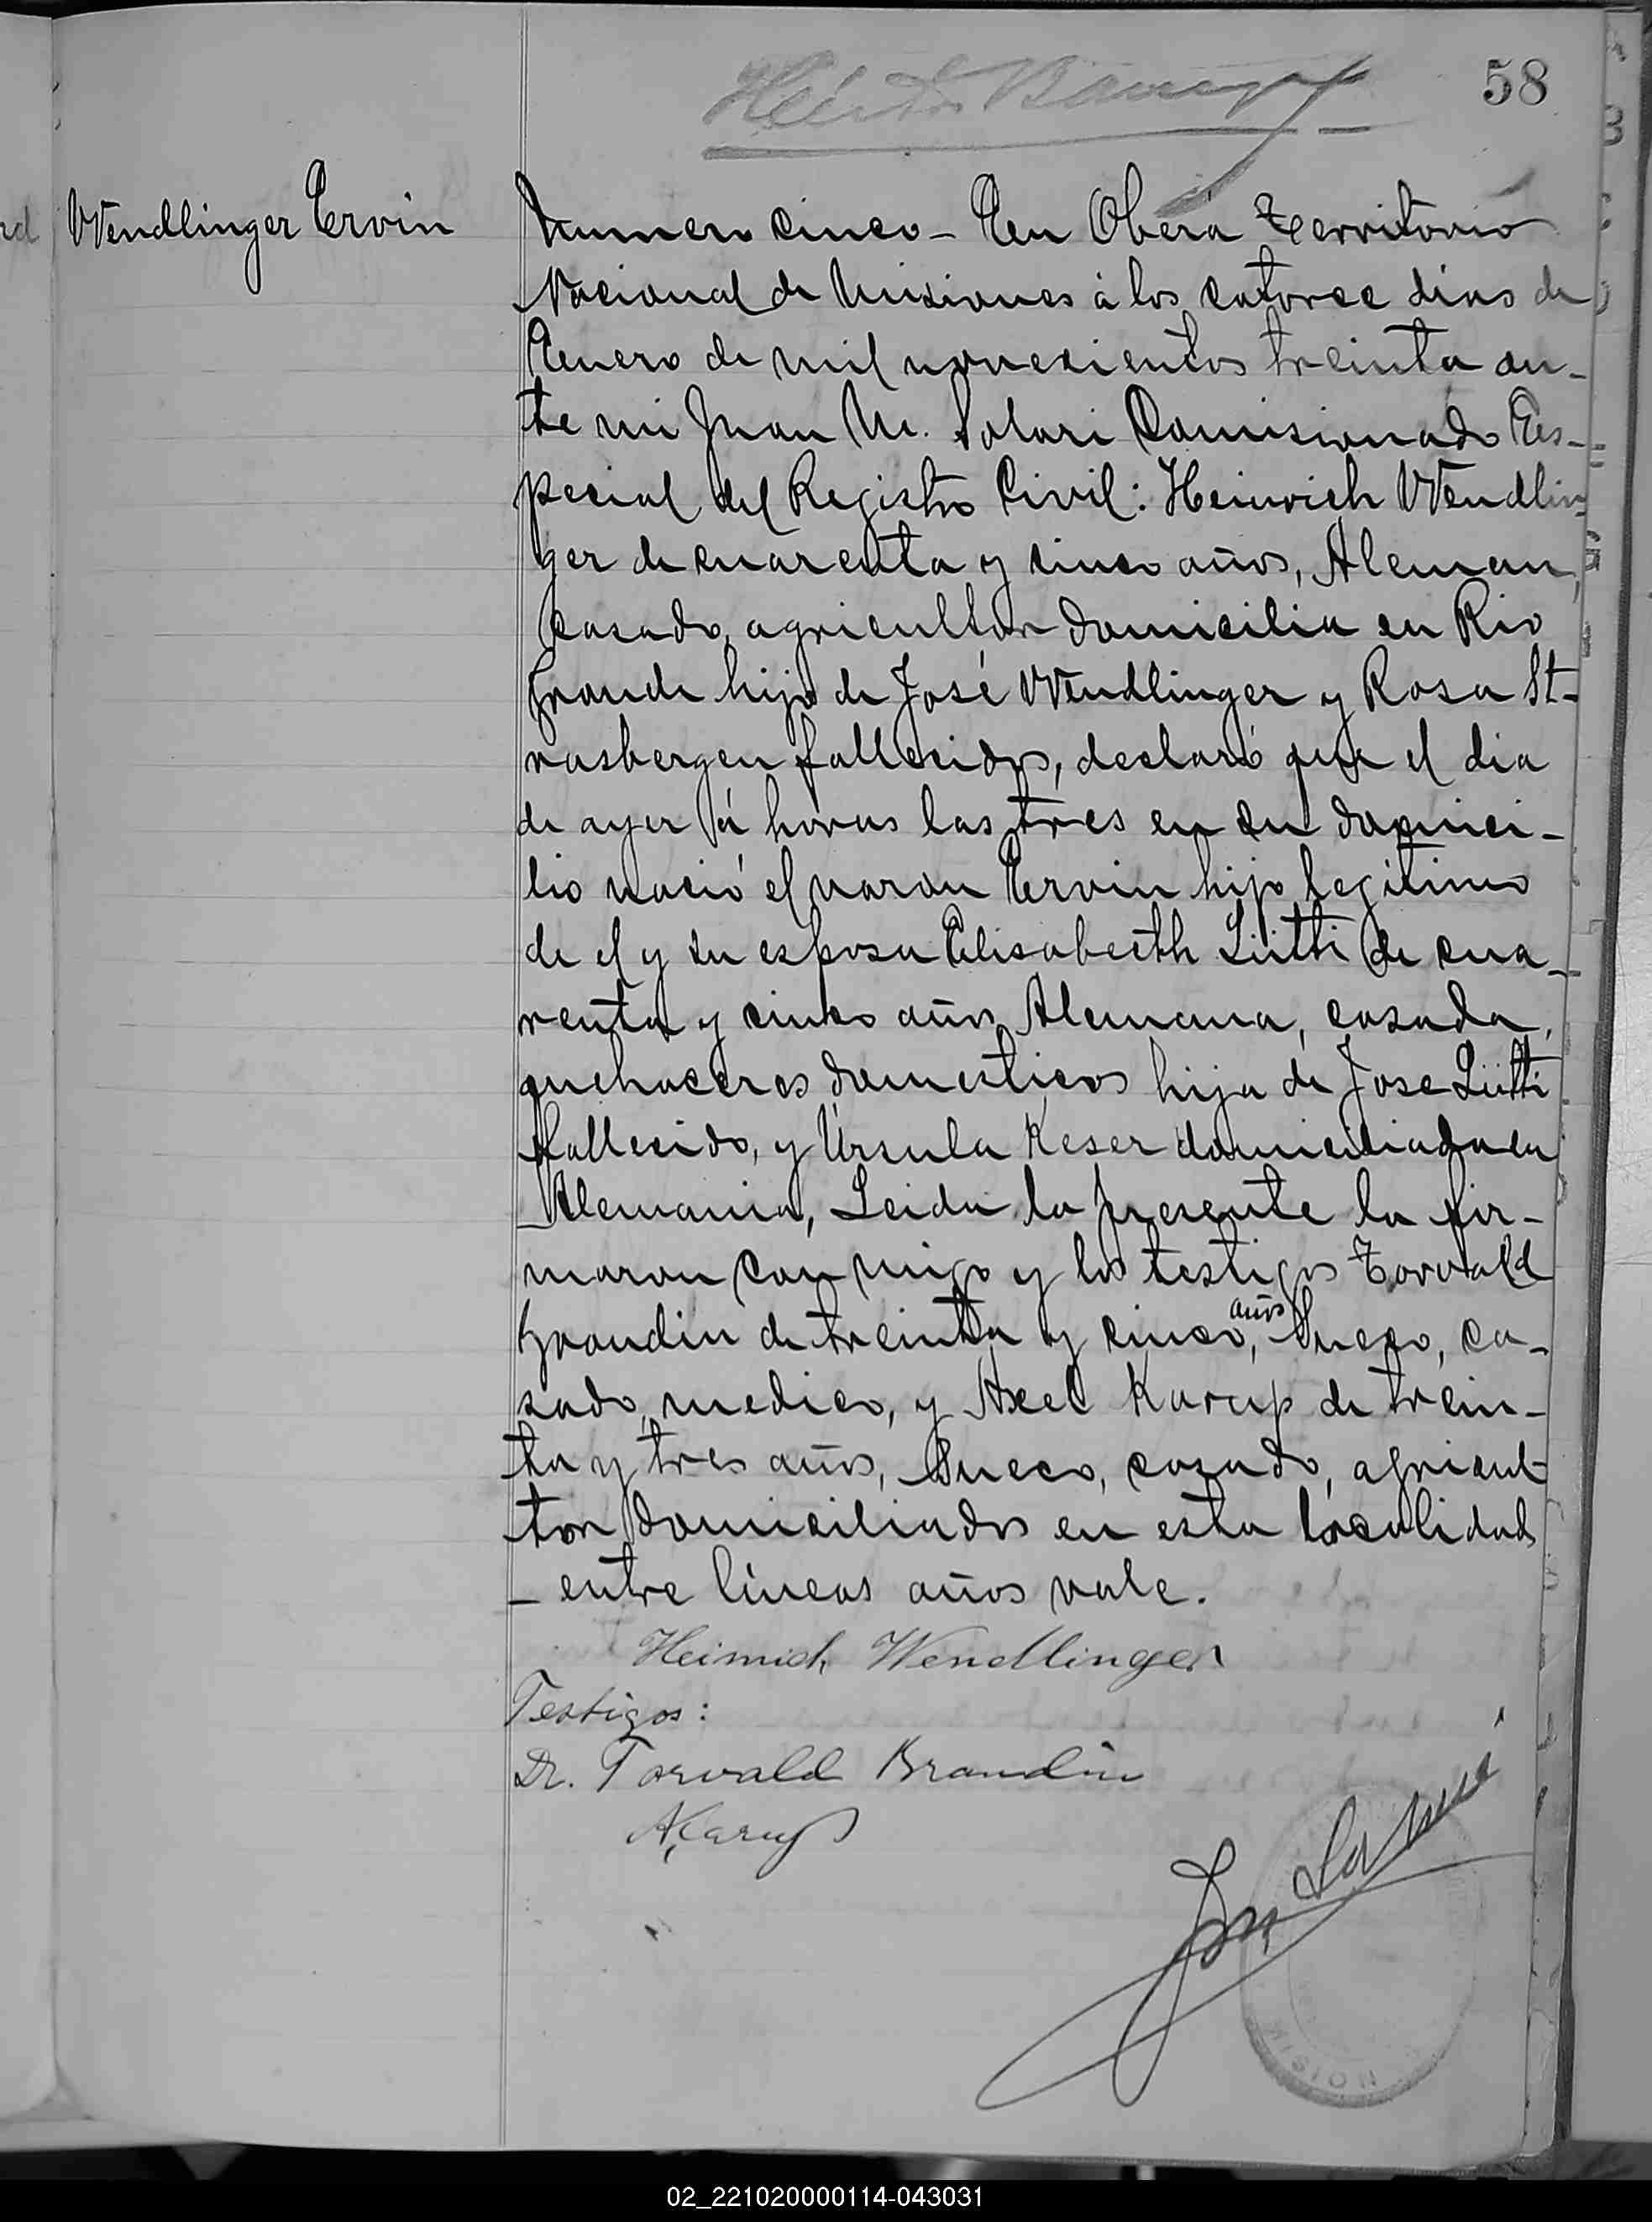 58
Wendlinger Ervin
Numero cinco - En Oberá Territorio
Nacional de Misiones á los catorce dias de
Enero de mil novecientos treinta an-
te mi Juan M. Solari Comisionado Es-
pecial del Registro Civil: Heinrich Wendlin
ger de cuarenta y cinco años, Aleman,
casado, agricultor domicilia en Rio
Grande hijo de José Wendlinger y Rosa St-
rasbergen fallecidos, declaró que el dia
de ayer á horas las tres en su domici-
lio nació el varon Ervin hijo legitimo
de el y su esposa Elisabeth Lütti de cua-
renta y cinco años, Alemana, casada,
quehaceres domesticos hija de Jose Lütti
fallecido, y Ursula Keser domiciliada en
Alemania, Leida la presente la fir-
maron con migo y los testigos Torvald
Brandin de treinta y cinco años, Sueco, ca-
sado, medico, y Axel Karup de trein-
ta y tres años, Sueco, casado, agricul-
tor domiciliados en esta localidad
- entre líneas años vale.
Heinrich Wendlinger
Testigos:
Dr. Torvald Brandin
AKarup
02_221020000114-043031